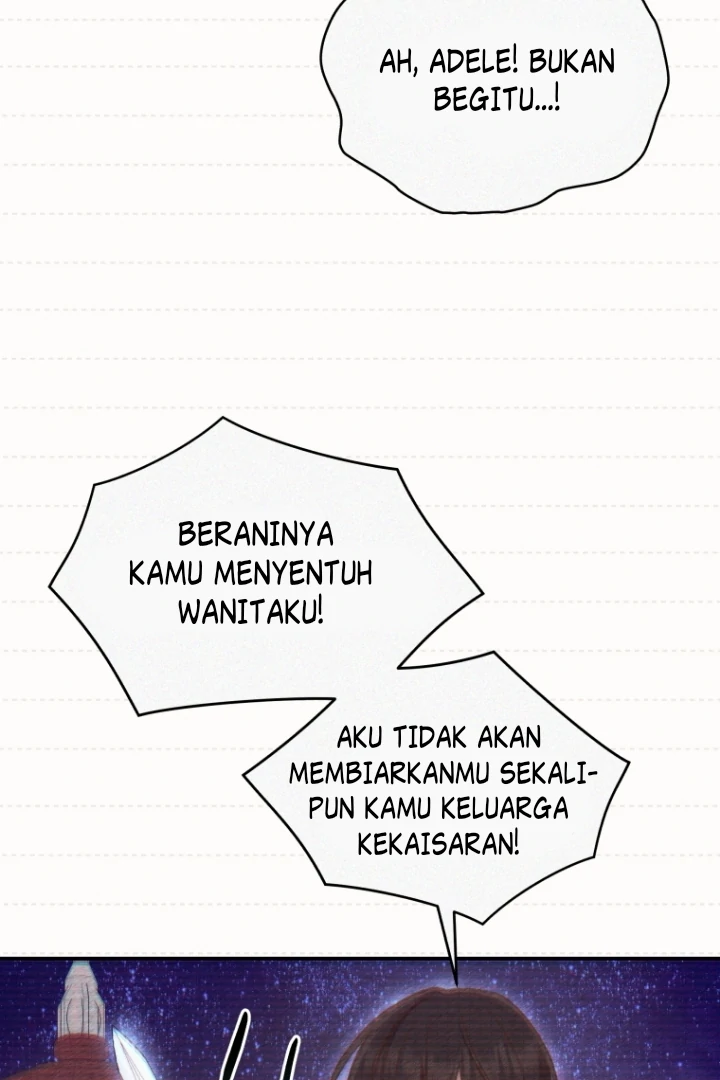 AH, ADELE! BUKAN
BEGITU...!
BERANINYA
KAMU MENYENTUH
WANITAKU!
AKU TIDAK AKAN
MEMBIARKANMU SEKALI-
PUN KAMU KELUARGA
KEKAISARAN!